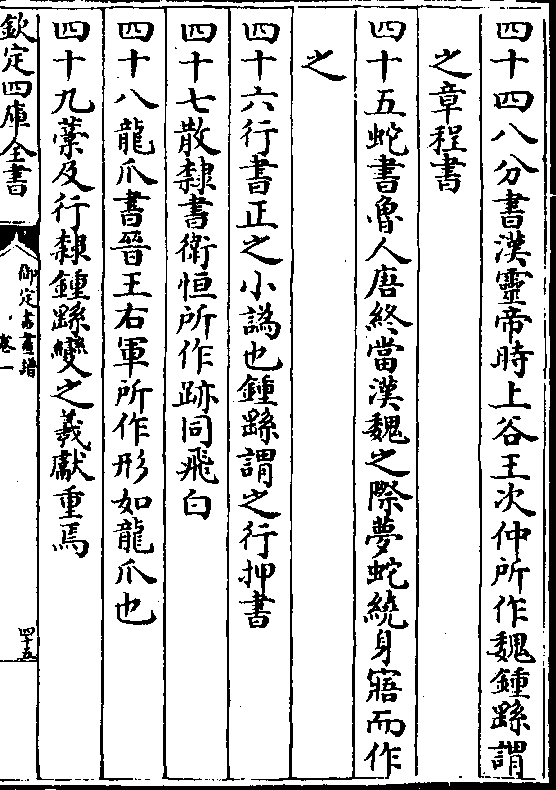 四十四八分書漢靈帝時上谷王次仲所作魏鍾繇謂
之章程書
四十五蛇書魯人唐終當漢魏之際夢蛇繞身寤而作
之
四十六行書正之小譌也鍾繇謂之行押書
四十七散隸書衛恒所作跡同飛白
四十八龍爪書晉王右軍所作形如龍爪也
四十九藁及行隸鍾繇變之羲獻重焉
欽定四庫全書
御定書畫譜
卷一
四十五